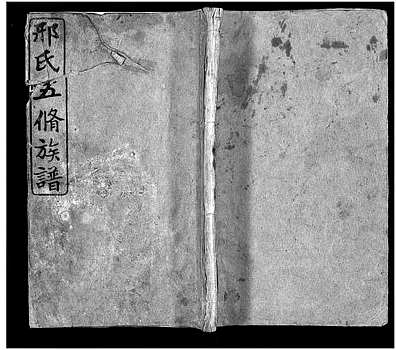 邢氏五脩族譜